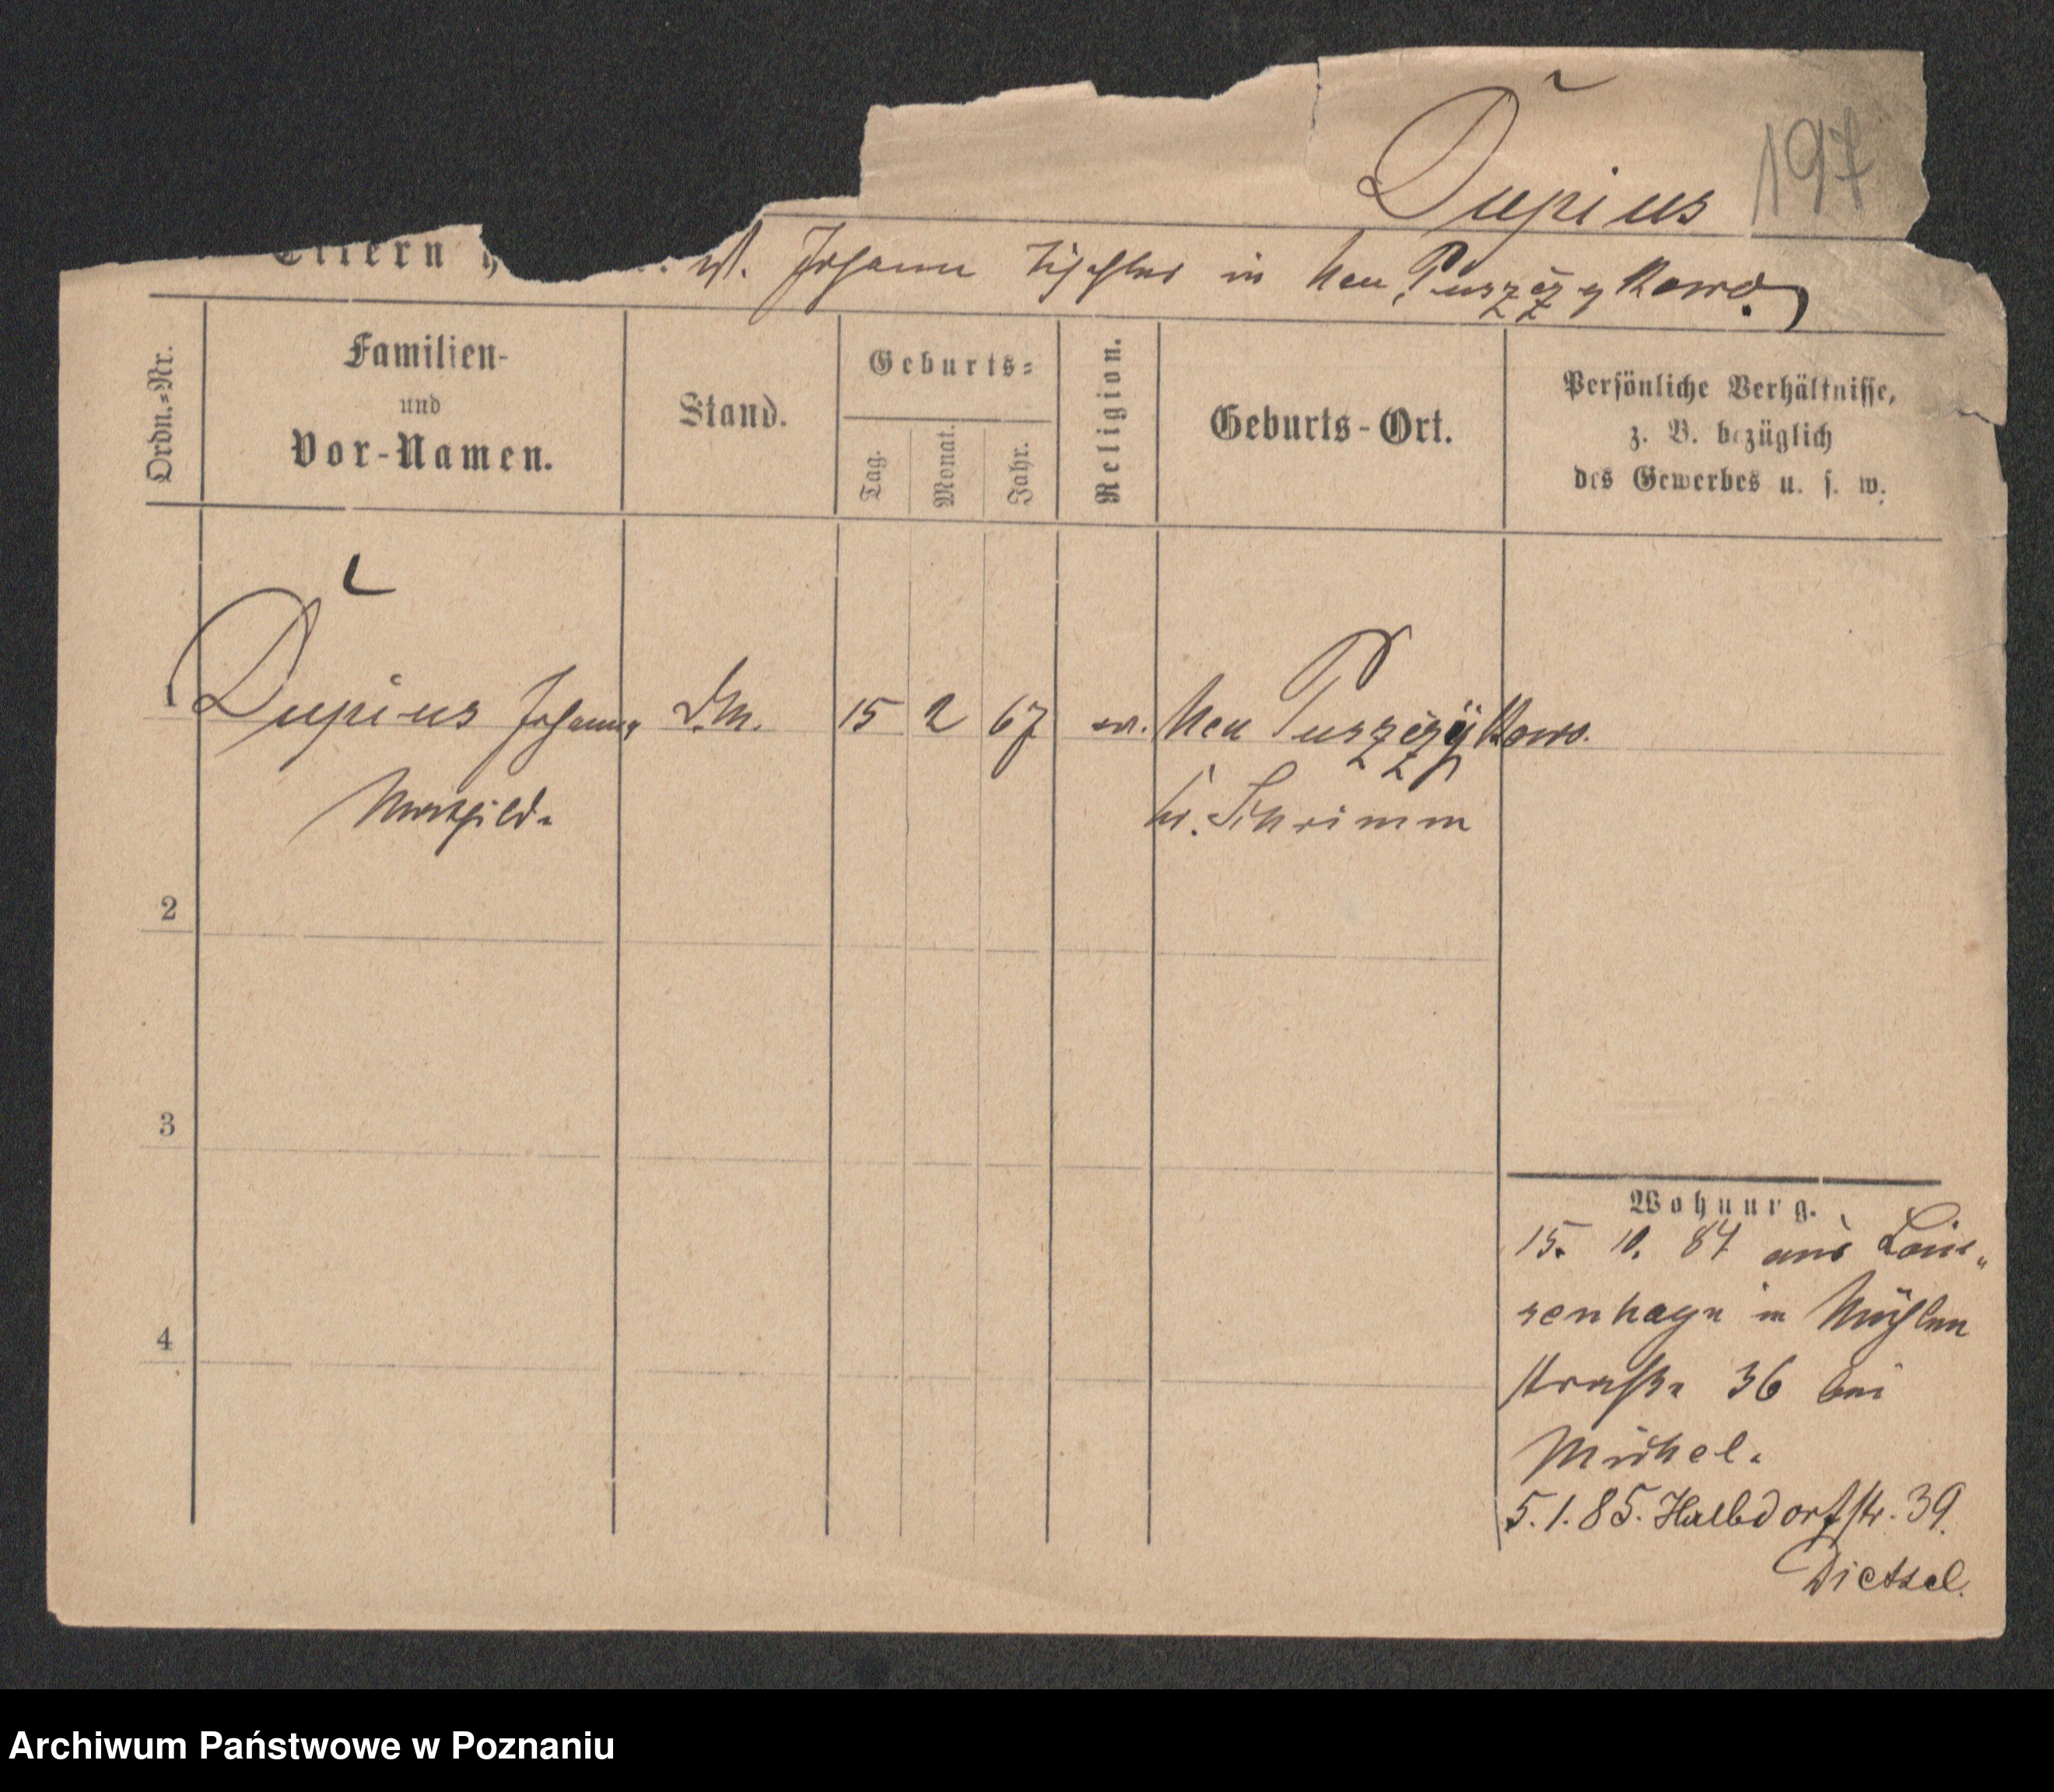 Dupius 197
Eltern
Johann Tischler in Neu Puszczykowo
Ordn.-Nr.
Familien-
und
Vor-Namen.
Stand.
Geburts-
Tag.
Monat.
Jahr.
Religion.
Geburts-Ort.
Persönliche Verhältnisse,
z. B. bezüglich
des Gewerbes u. s. w.
1 Dupius Johanna D.M. 15 2 67 ev. Neu Puszczykowo.
Mathilde Kr. Schrimm
2
3
4
Wohnung.
15. 10. 84 aus Loui-
senhayn in Mühlen
straße 36 bei
Michel.
5.1.85. Halbdorfstr. 39.
Dietzel.
Archiwum Państwowe w Poznaniu